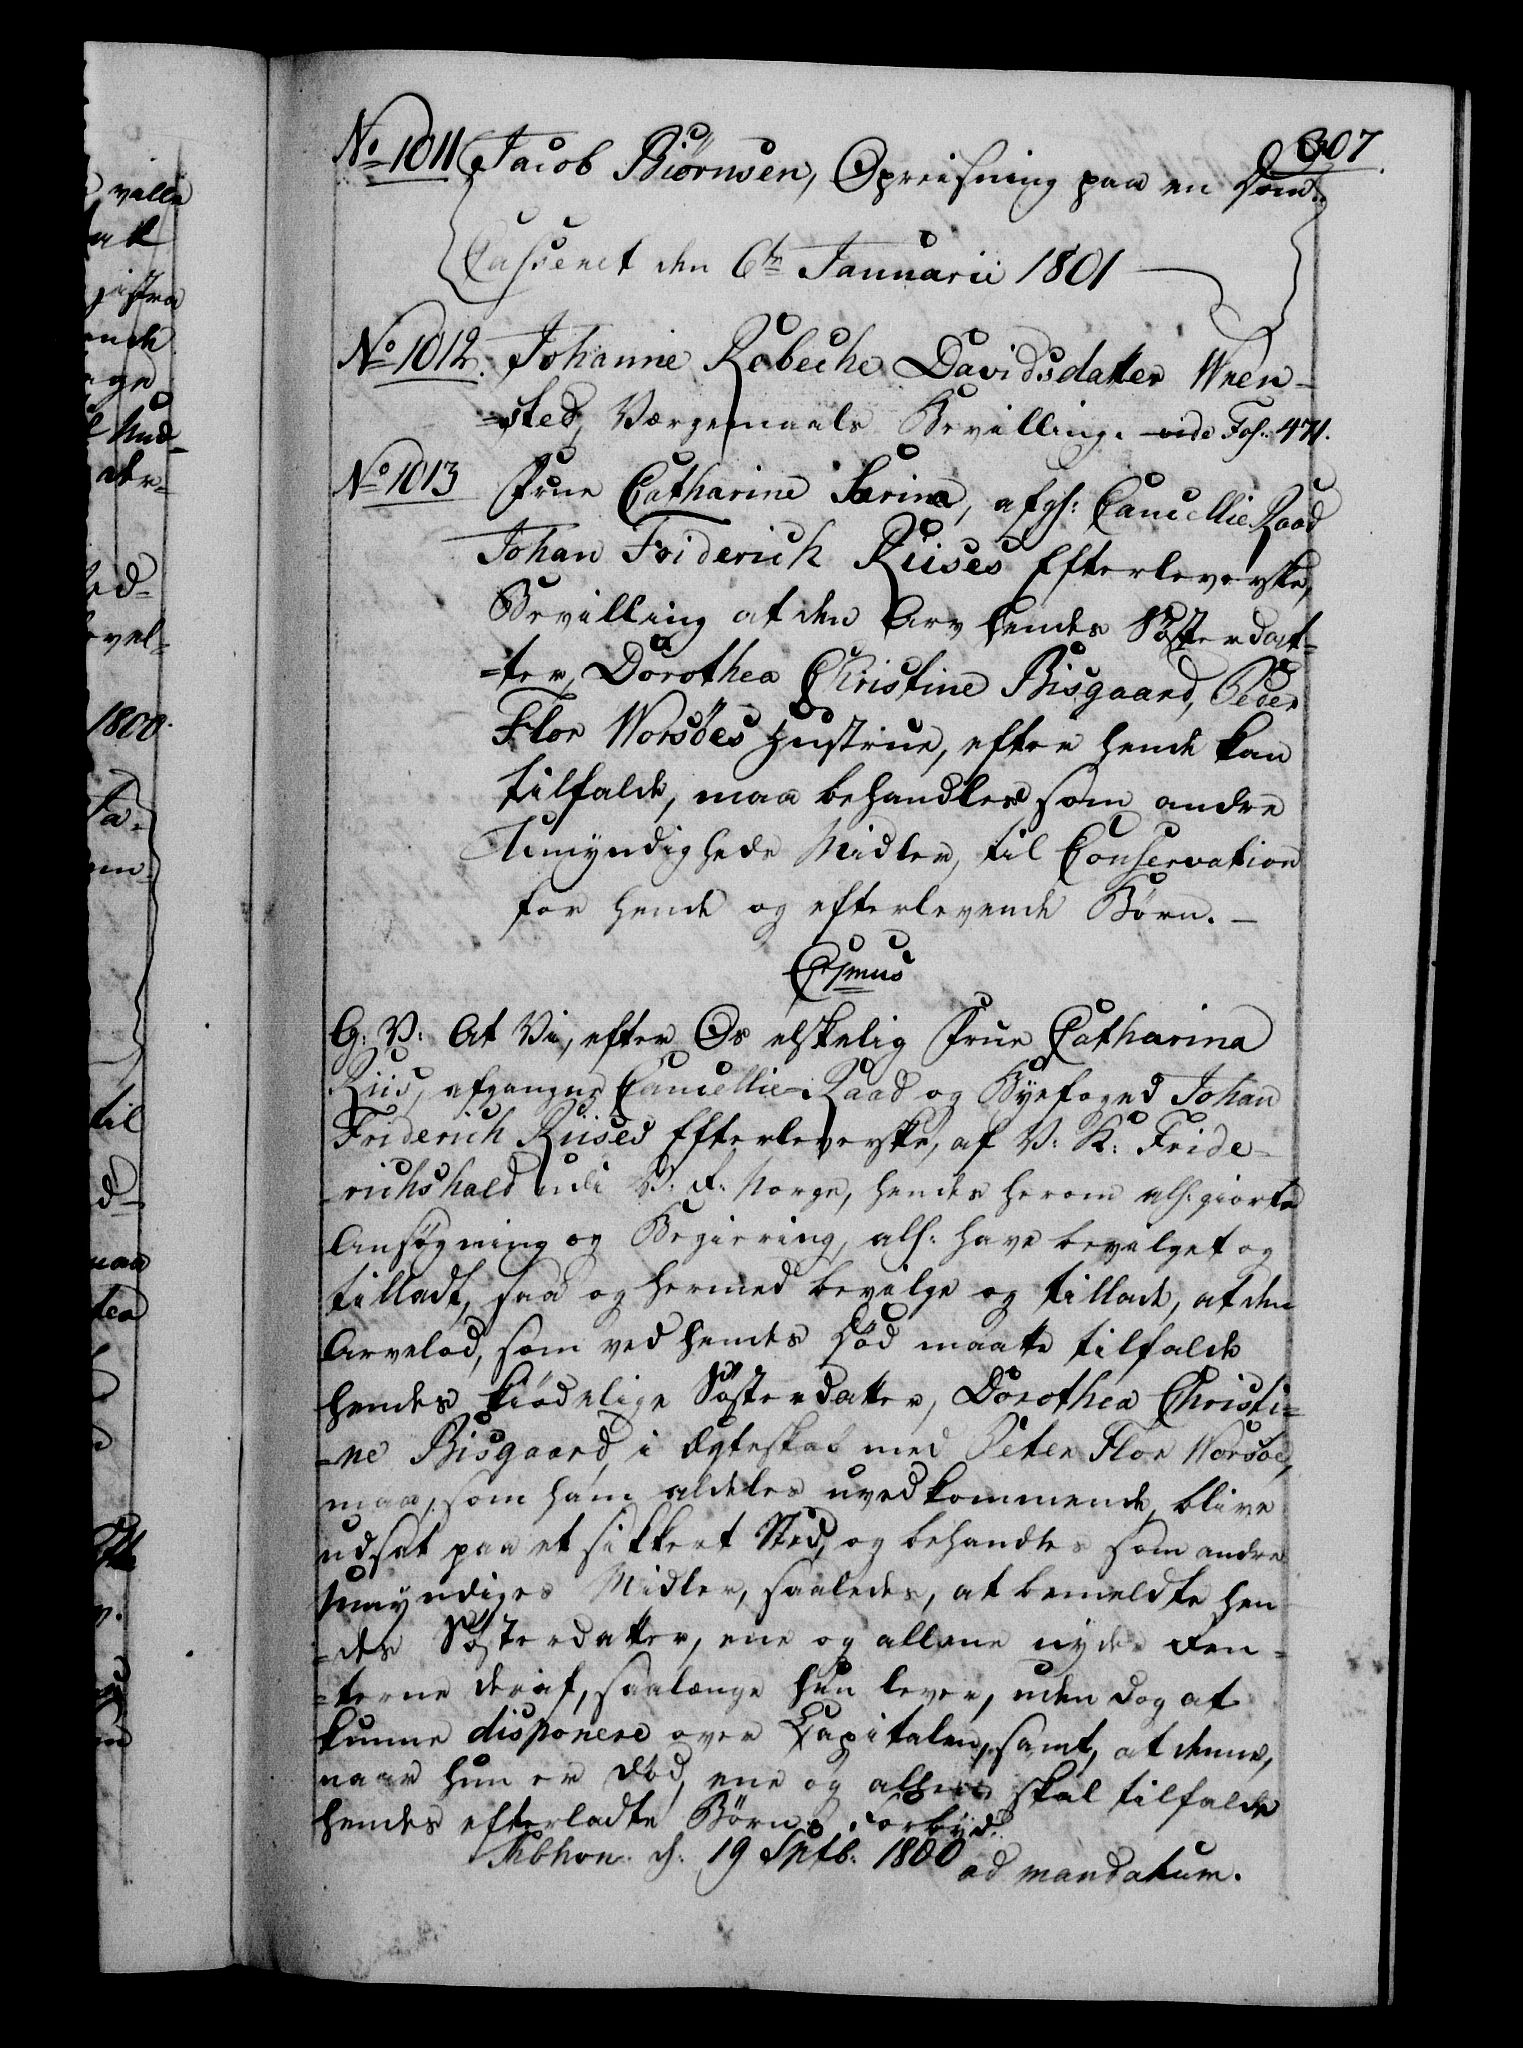 307
No 1011 Jacob Biørnsen, Opreisning paa en Dom.
Casseret den 6te Januarii 1801
No 1012. Johanne Rebeche Davidsdatter Ween-
=sted, Værgemaals Bevilling. vide Fol. 471.
No 1013 Frue Catharine Sarina, afg: Cancellie Raad
Johan Friderich Riises Efterleverske,
Bevilling at den Arv hendes Søsterdat-
=ter, Dorothea Christine Bisgaard, Peder
Flor Worsöes Hustrue, efter hende kan
tilfalde, maa behandles som andre
Umyndighede Midler, til Conservation
for hende og efterlevende Børn. -
G: V: At Vi, efter Os elskelig Frue Catharina
Riis, afgangne Cancellie-Raad og Byefoged Johan
Friderich Riises Efterleverske, af V: K: Fride-
-richshald udi V: R: Norge, hendes herom all: giorte
Ansøgning og Begiering, all: have bevilget og
tilladt, saa og hermed bevilge og tillade, at den
Arvelod, som ved hendes Død maatte tilfalde
hendes kiødelige Søsterdatter, Dorothea Christi=
-ne Bisgaard, i Ægteskab med Peter Flor Worsöe,
maa, som ham aldeles uvedkommende, blive
udsat paa et sikkert Sted, og behandles som andre
Umyndiges Midler, saaledes, at bemeldte hen
=des Søsterdatter, ene og allene nyder Ren=
=terne deraf, saalænge hun lever, uden dog at
kunne disponere over Kapitalen, samt, at denne,
naar hun er død, ene og allene skal tilfalde
hendes efterladte Børn. Forbyd:
Kbhvn. d: 19 Sptb: 1800 ad mandatum.